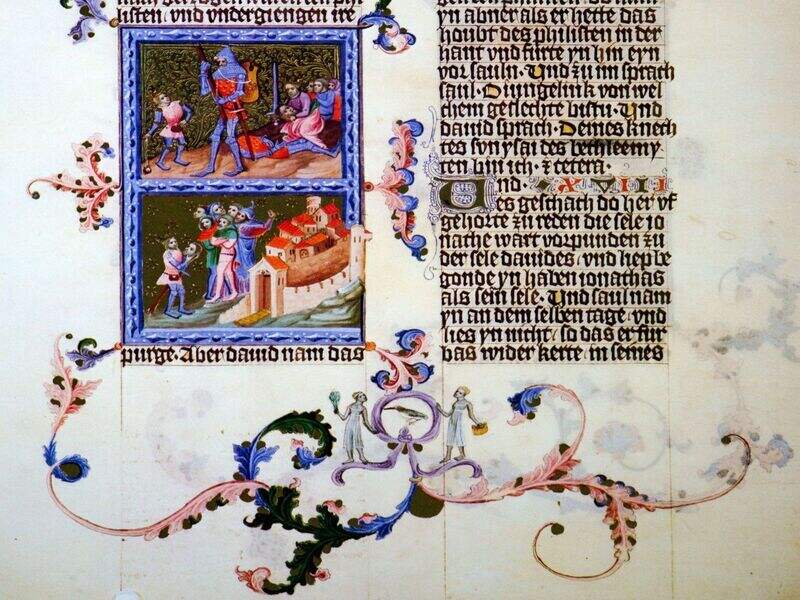 listen, vnd vndergiengen ire
purge. Aber dauid nam das
yn abner als er hette das
houbt des philisten in der
hant vnd furte yn hin eyn
vor sauln. Vnd zu im sprach
saul. O iungelink von wel
chem geslechte bistu. Vnd
dauid sprach. Deines knech
tes syn ysai des bethleemy
ten bin ich. ⁊ cetera.
Und. XVIII
es geschach do her vf
gehorte zu reden die sele io
nathe wart vorpunden zu
der sele dauides, vnd hep be
gonde yn haben ionathas
als sein sele. Vnd saul nam
yn an dem selben tage. vnd
lies yn nicht, so das er fur
bas wider kerte in seines